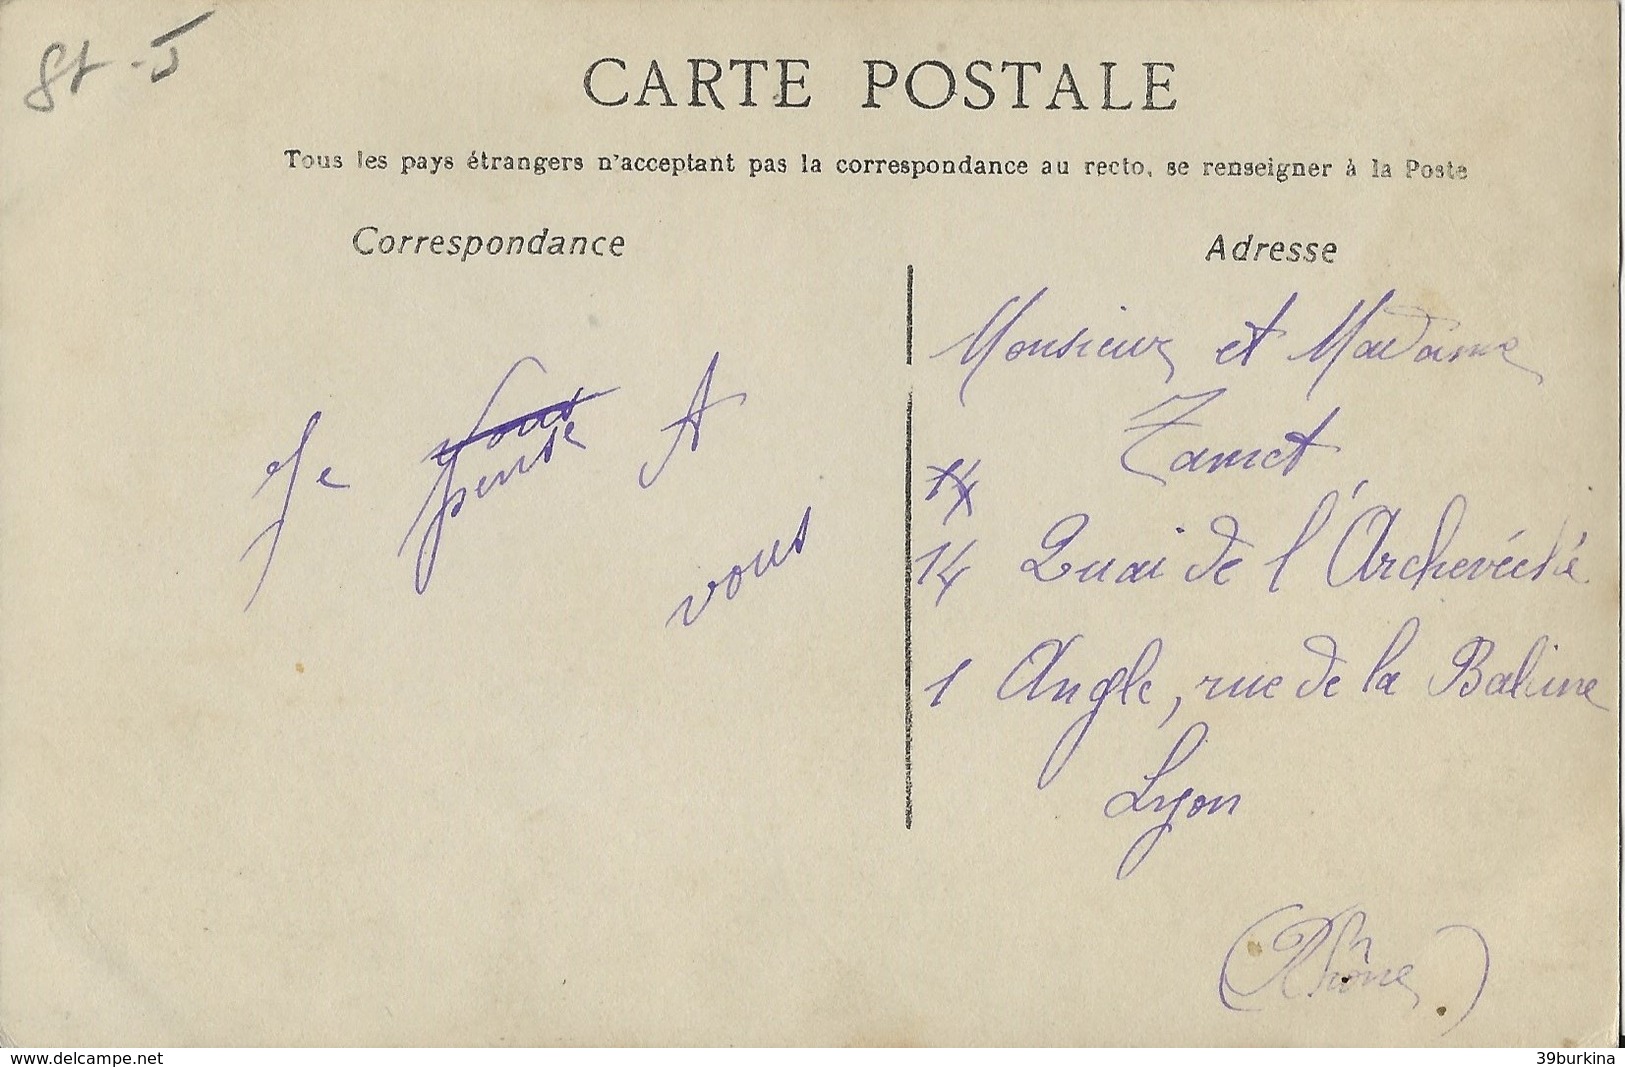 CARTE POSTALE
Tous les pays étrangers n'acceptant pas la correspondance au recto, se renseigner à la Poste
Correspondance
Je pense A
vous
Adresse
Monsieur et Madame
Zamet
14
14 Quai de l'Archevéché
1 Angle, rue de la Baleine
Lyon
(Rhône)
www.delcampe.net
39burkina